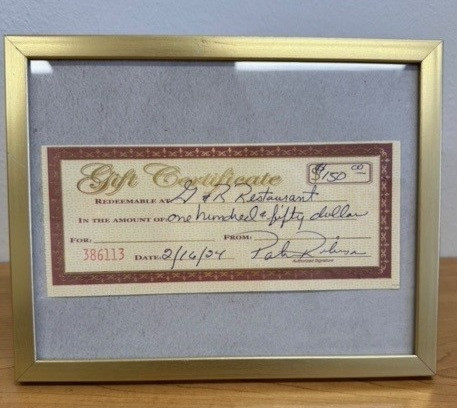 Gift Certificate $150 00
REDEEMABLE AT G & R Restaurant
IN THE AMOUNT OF one hundred & fifty dollar
FOR: FROM:
386113 DATE: 2/16/24
Authorized Signature